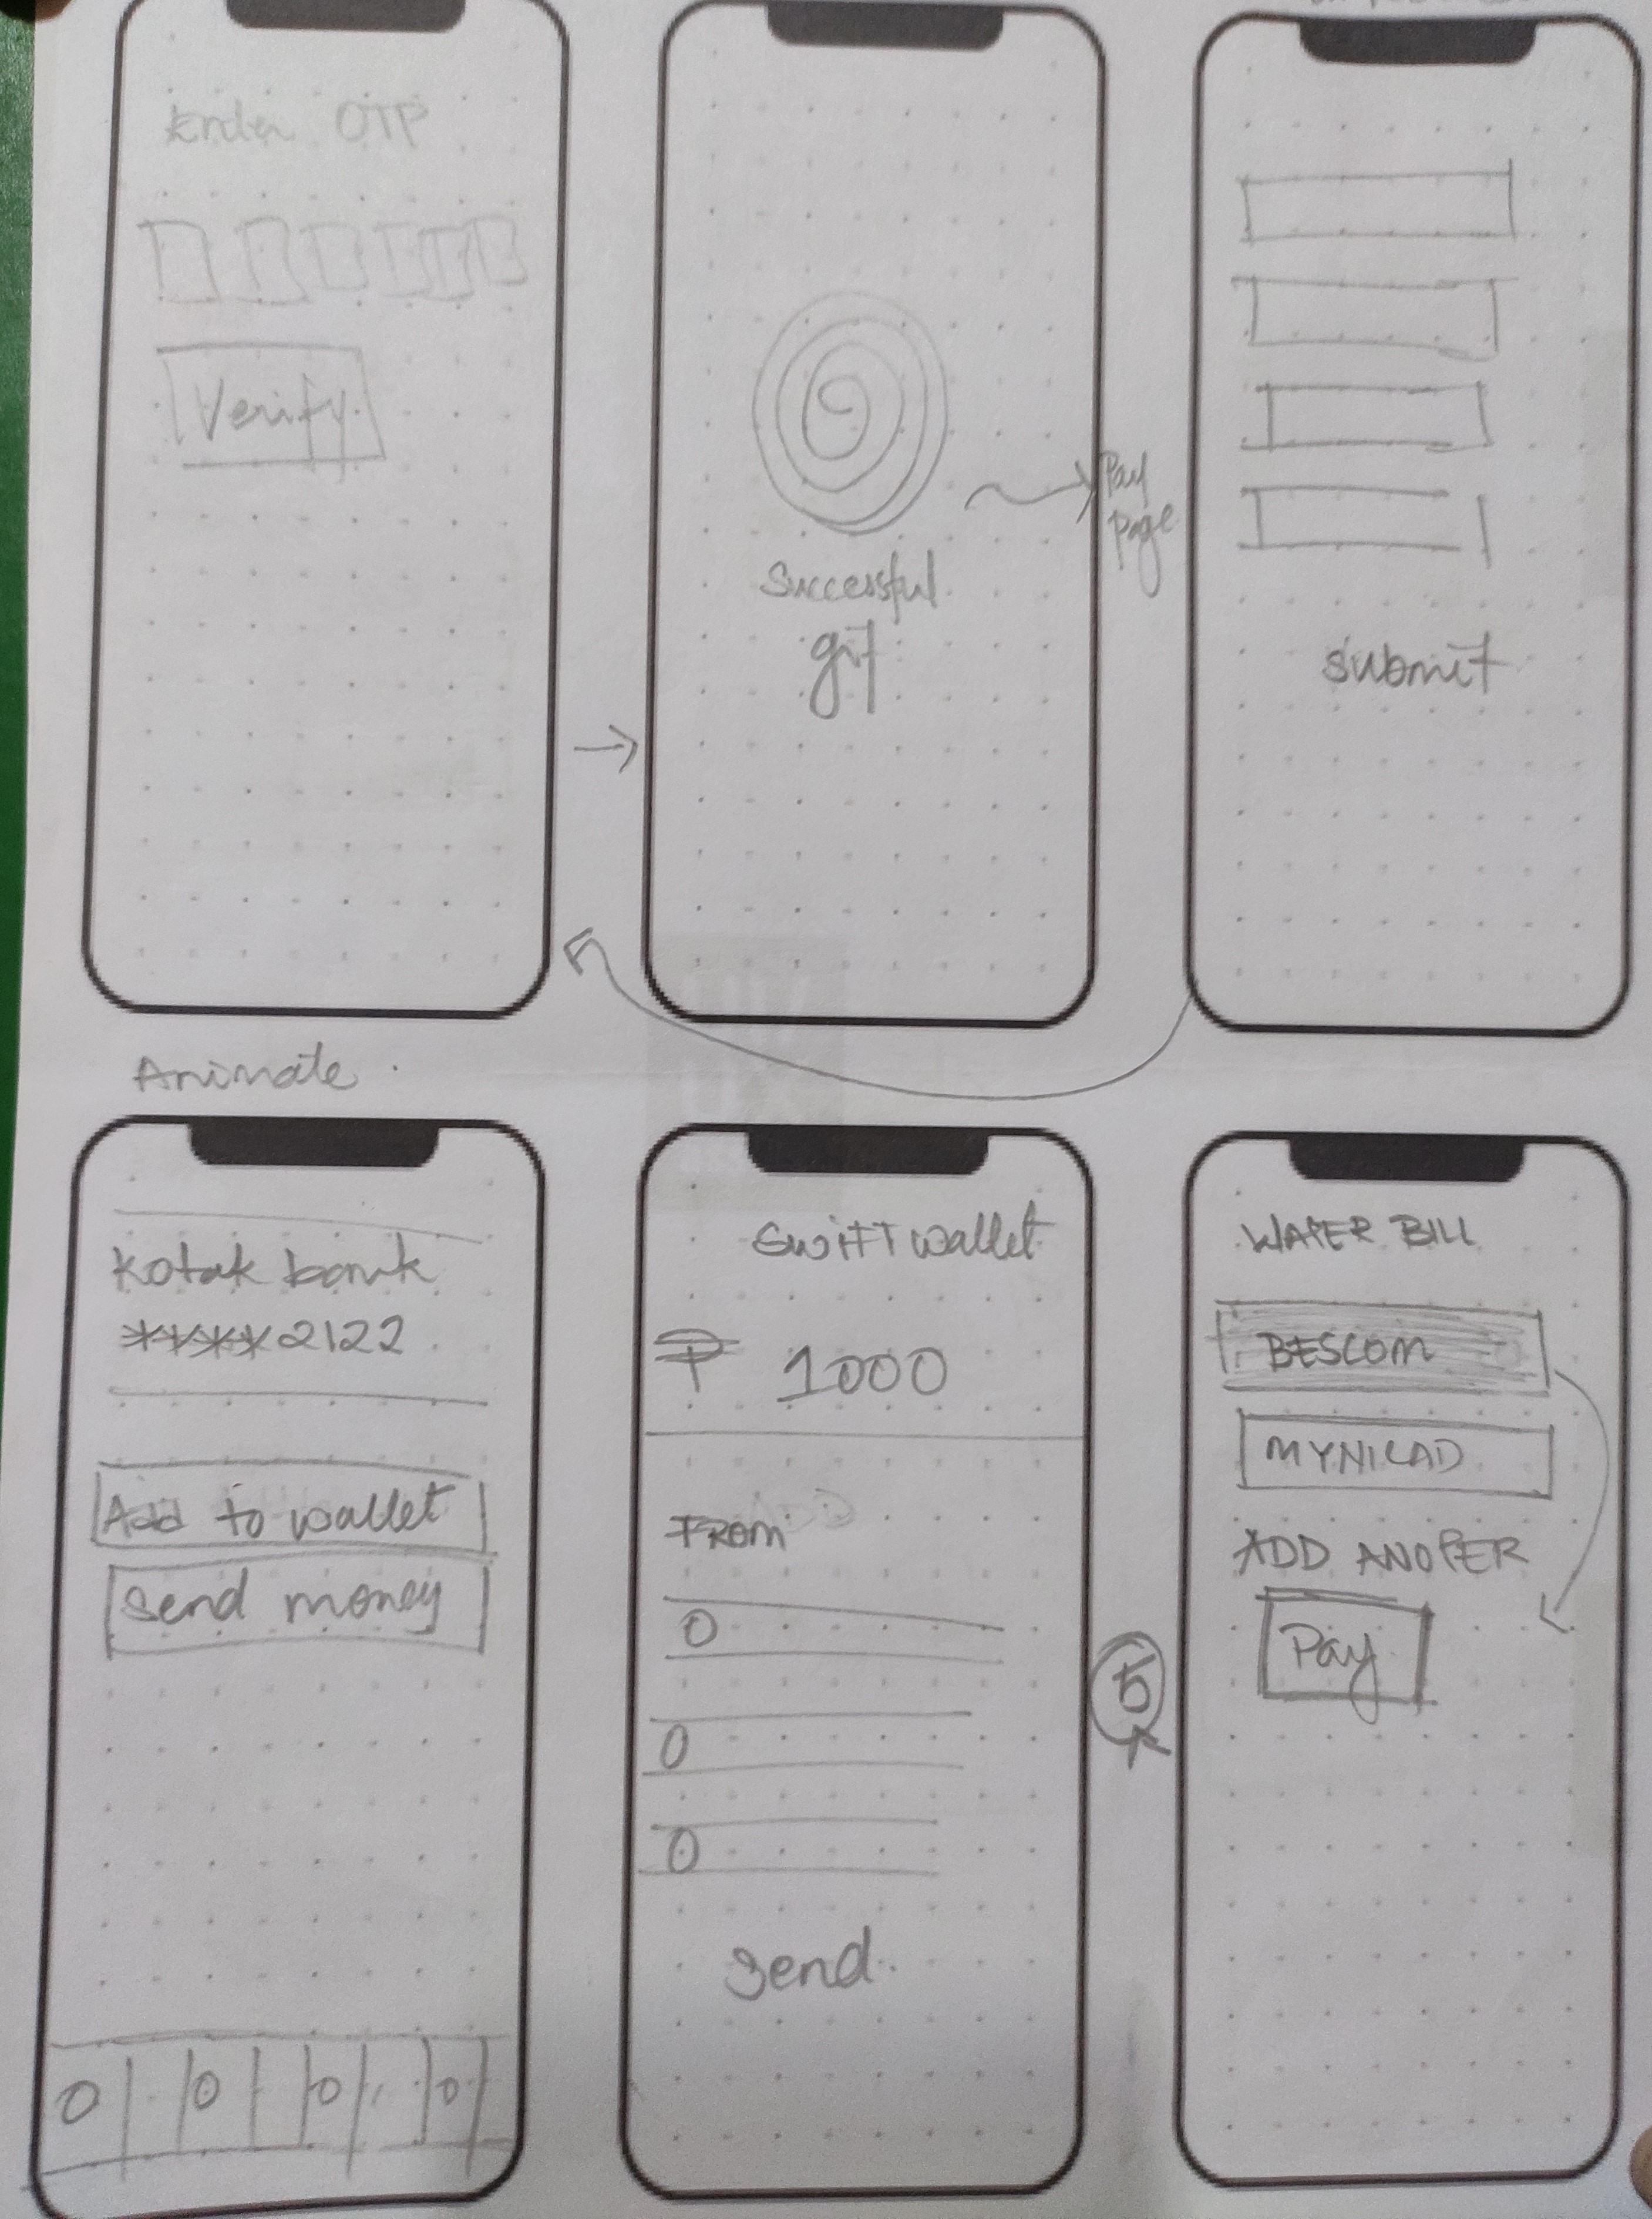 Enter OTP
Verify
Successful
gif
Pay
page
submit
Animate
Kotak bank
****2122
Add to wallet
Send money
0 0 0 0
SWIFT wallet
₱ 1000
FROM
0
0
0
Send
5
WATER BILL
BESCOM
MYNILAD
ADD ANOTER
Pay